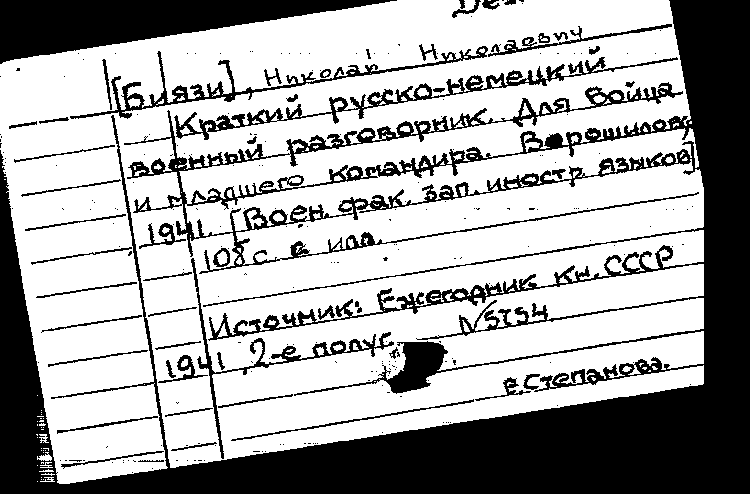 [Биязи], Николай Николаевич
Краткий русско-немецкий
военный разговорник. Для бойца
и младшего командира. Ворошиловск,
1941. [Воен. фак. зап. иностр. языков]
108 с с илл.
Источник: Ежегодник кн. СССР
1941, 2-е полуг. №5754
Е.Степанова.